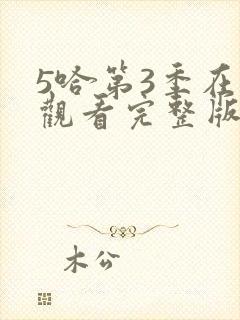 5哈第3季在
觀看完整版
木公